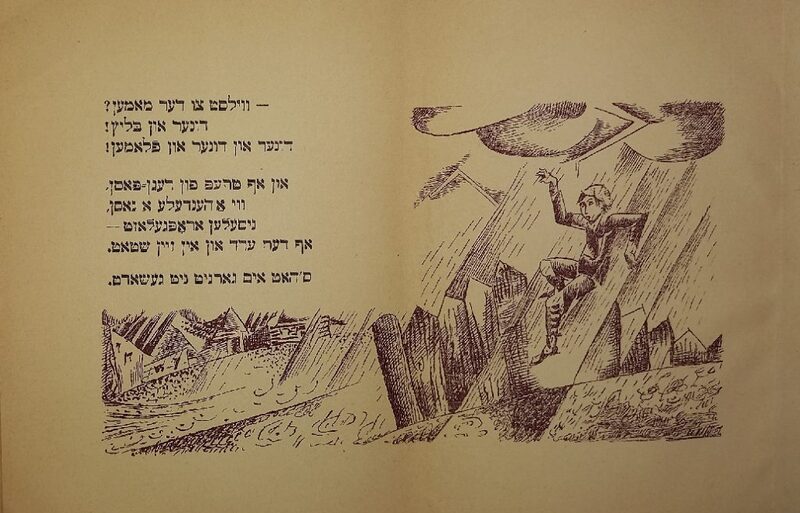 — ווילסט צו דער מאמען?
דונער און בליץ!
דונער און דונער און פלאמען!
און אף טרעפ פון רעגן-פאסן,
ווי א הענדעלע א נאסן,
ניסעלען אראפגעלאזט —
אף דער ערד און אין זיין שטאט.
ס'האט אים גארניט ניט געשאדט.